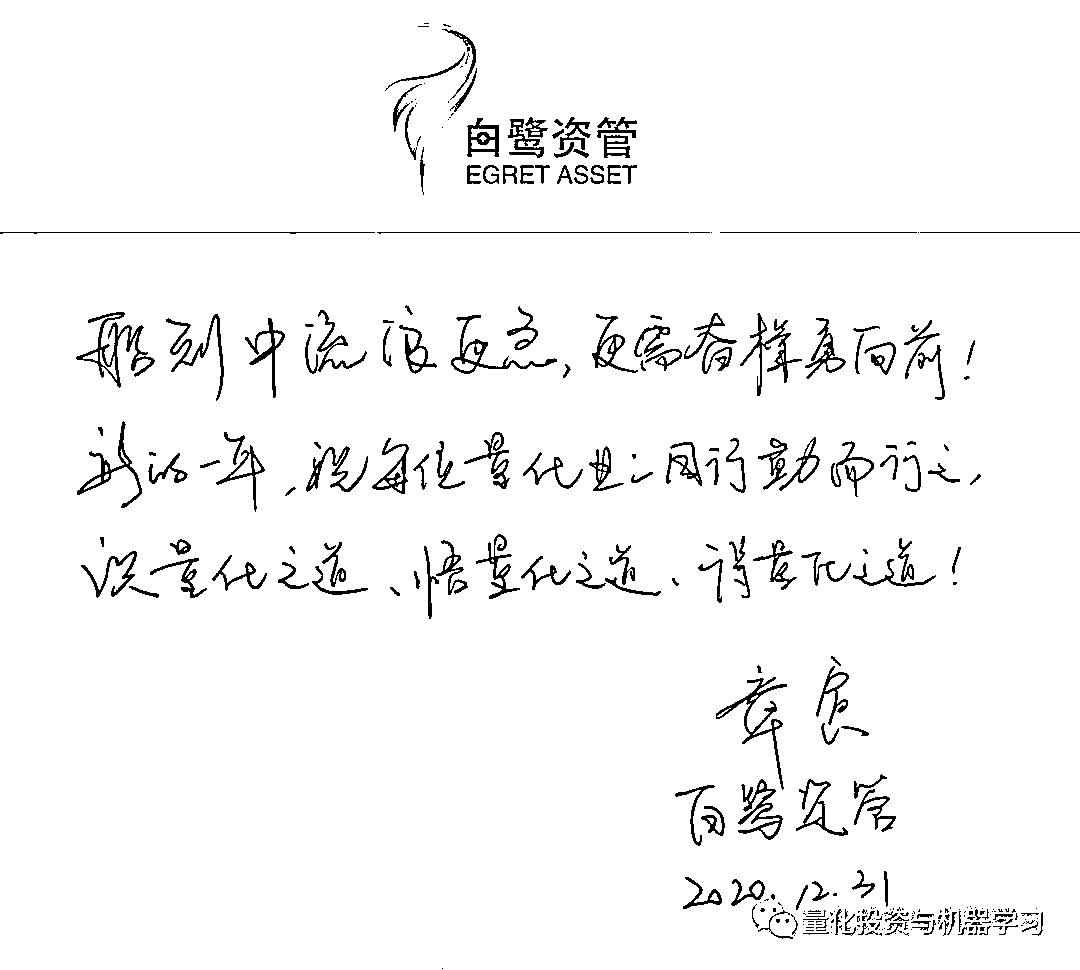 白鹭资管
EGRET ASSET
船到中流浪更急,更需奋楫勇向前!
新的一年,祝每位量化业之同行勤而行之,
识量化之道、悟量化之道、得量化之道!
章寅
白鹭资管
2020.12.31
量化投资与机器学习